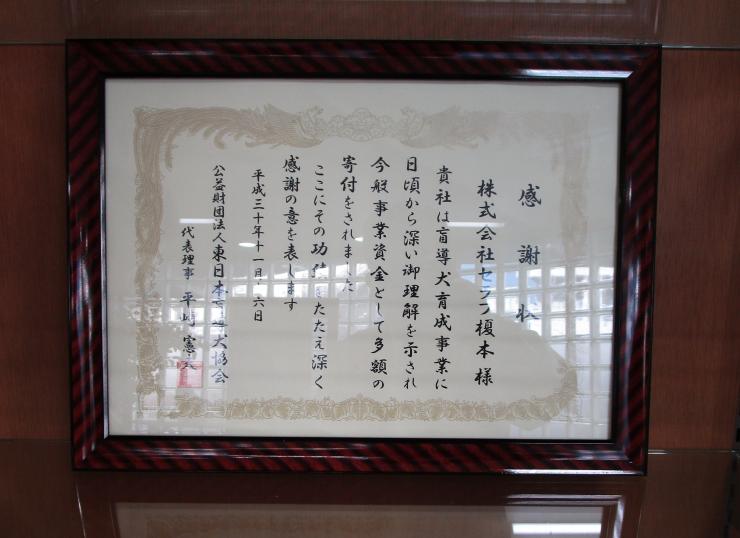 感謝状
株式会社セラフ榎本様
貴社は盲導犬育成事業に
日頃から深い御理解を示され
今般事業資金として多額の
寄付をされました
ここにその功績をたたえ深く
感謝の意を表します
平成三十年十一月 六日
公益財団法人東日本盲導犬協会
代表理事 平 憲